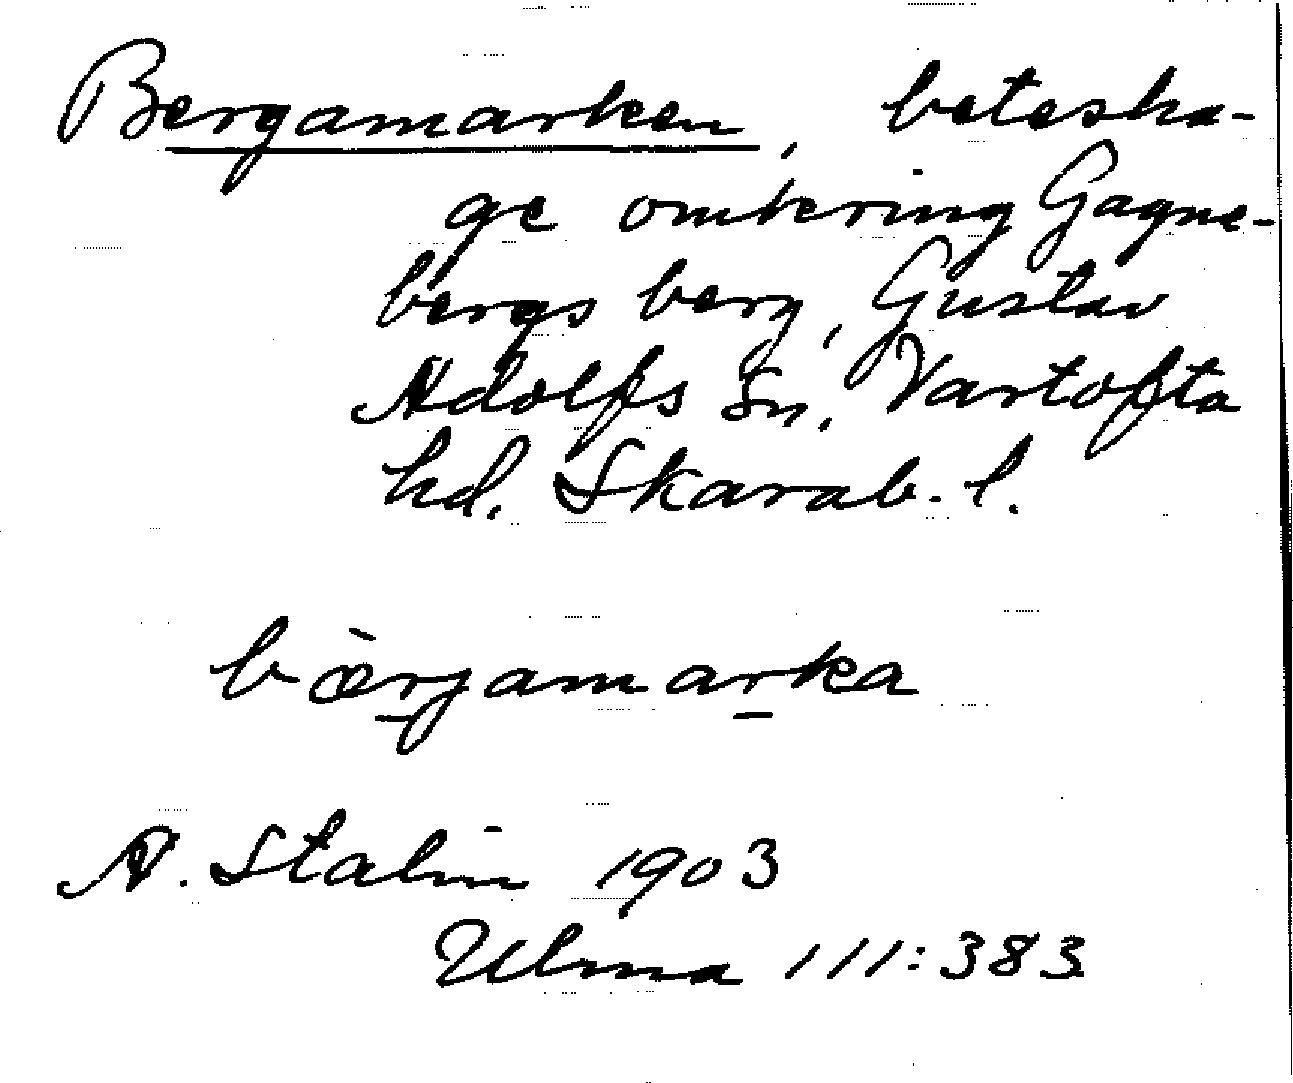 Bergamarken, beteska-
ge omkring Gagne-
bergs berg, Gustav
Adolfs sn, Vartofta
hd. Skarab. l.
bæ̀rjamarka
A. Stalin 1903
Ulma 111:383